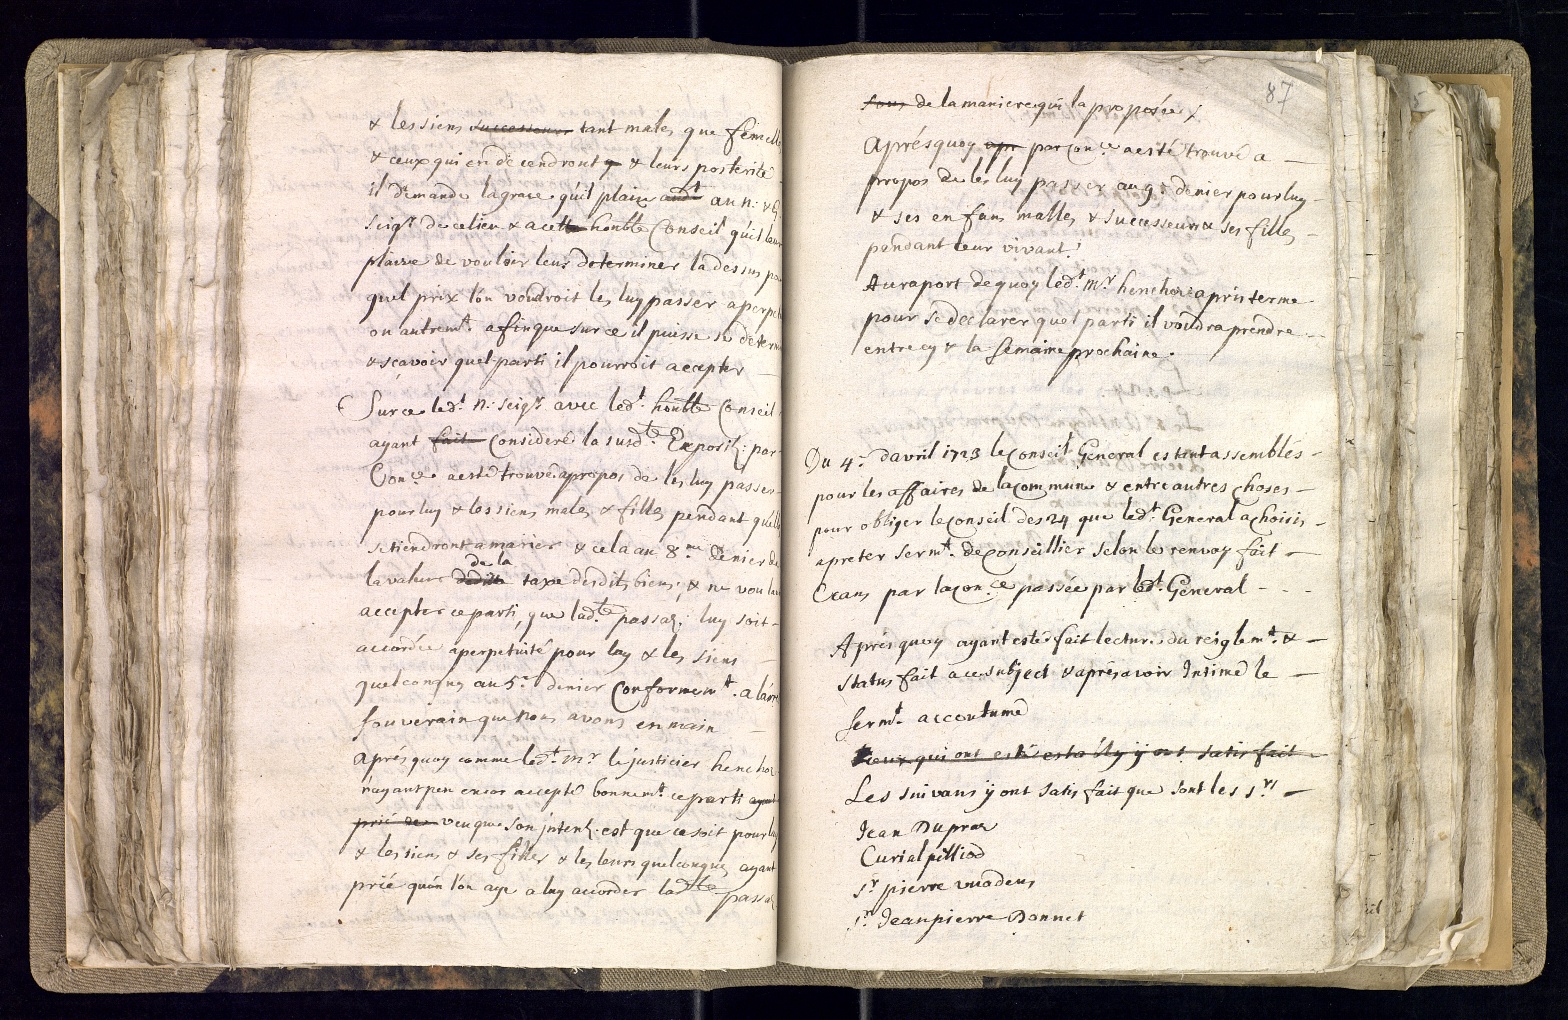 & les siens successeurs tant males que femelle
& ceux qui en decendront & leurs posterité
il demande la grace quil plaise audt au n. &
seigr de ce lieu & a cette honble Conseil quil leur
plaise de vouloir leur determiner la dessus po
quel prix lon voudroit les luy passer a perpet
ou autremt. affin que sur ce il puisse se determ
& sçavoir quel parti il pourroit accepter
Sur ce ledt. n. seigr avec ledt. honble Conseil
ayant fait Consideré la susdte Exposit. par
Conce a esté trouvé apropos de les luy passer
pour luy & les siens males & filles pendant quelle
se tiendront a marier & cela au 8me denier de
de la
la valeur taxe desdits biens, & ne voul
accepter ce parti, que ladte. passat. luy soit
accordée a perpetuité pour luy & les siens
quelconques au 5e. denier Conformemt. a l'arre
souverain que nous avons en main
Aprés quoy comme ledt. mr le justicier henchoz
nayant peu encor accepté bonnemt ce parti ayant
prié de veu que son intent. est que ce soit pour luy
& les siens & ses filles & les leurs quelconques ayant
prié quón lón aye a luy accorder ladte passat
87
sous de la maniere qui la proposée
Aprés quoy apr par Conce a esté trouvé a
propos de les luy passer au 9e denier pour luy
& ses enfans malles & successeurs & ses filles
pendant leur vivant.
Au raport de quoy ledt. mr henchoz a pris terme
pour se declarer quel parti il voudra prendre
entre cy & la semaine prochaine.
Du 4e. davril 1723 le Conseil General estant assemblés
pour les affaires de la commune & entre autres choses
pour obliger le Conseil des 24 que ledt. General a choisis
a preter sermt. de Conseillier selon le renvoy fait
Ceans par la Conce passée par ledt. General
Aprés quoy ayant esté fait lecture du reiglemt. &
status fait a ce subject & aprés avoir Intimé le
sermt. accoutumé
Ceux qui ont esté establÿ ÿ ont satisfait
Les suivans ÿ ont satisfait que sont les srs
Jean Dupraz
Curial pilliod
Sr pierre
Sr Jean pierre Bonnet